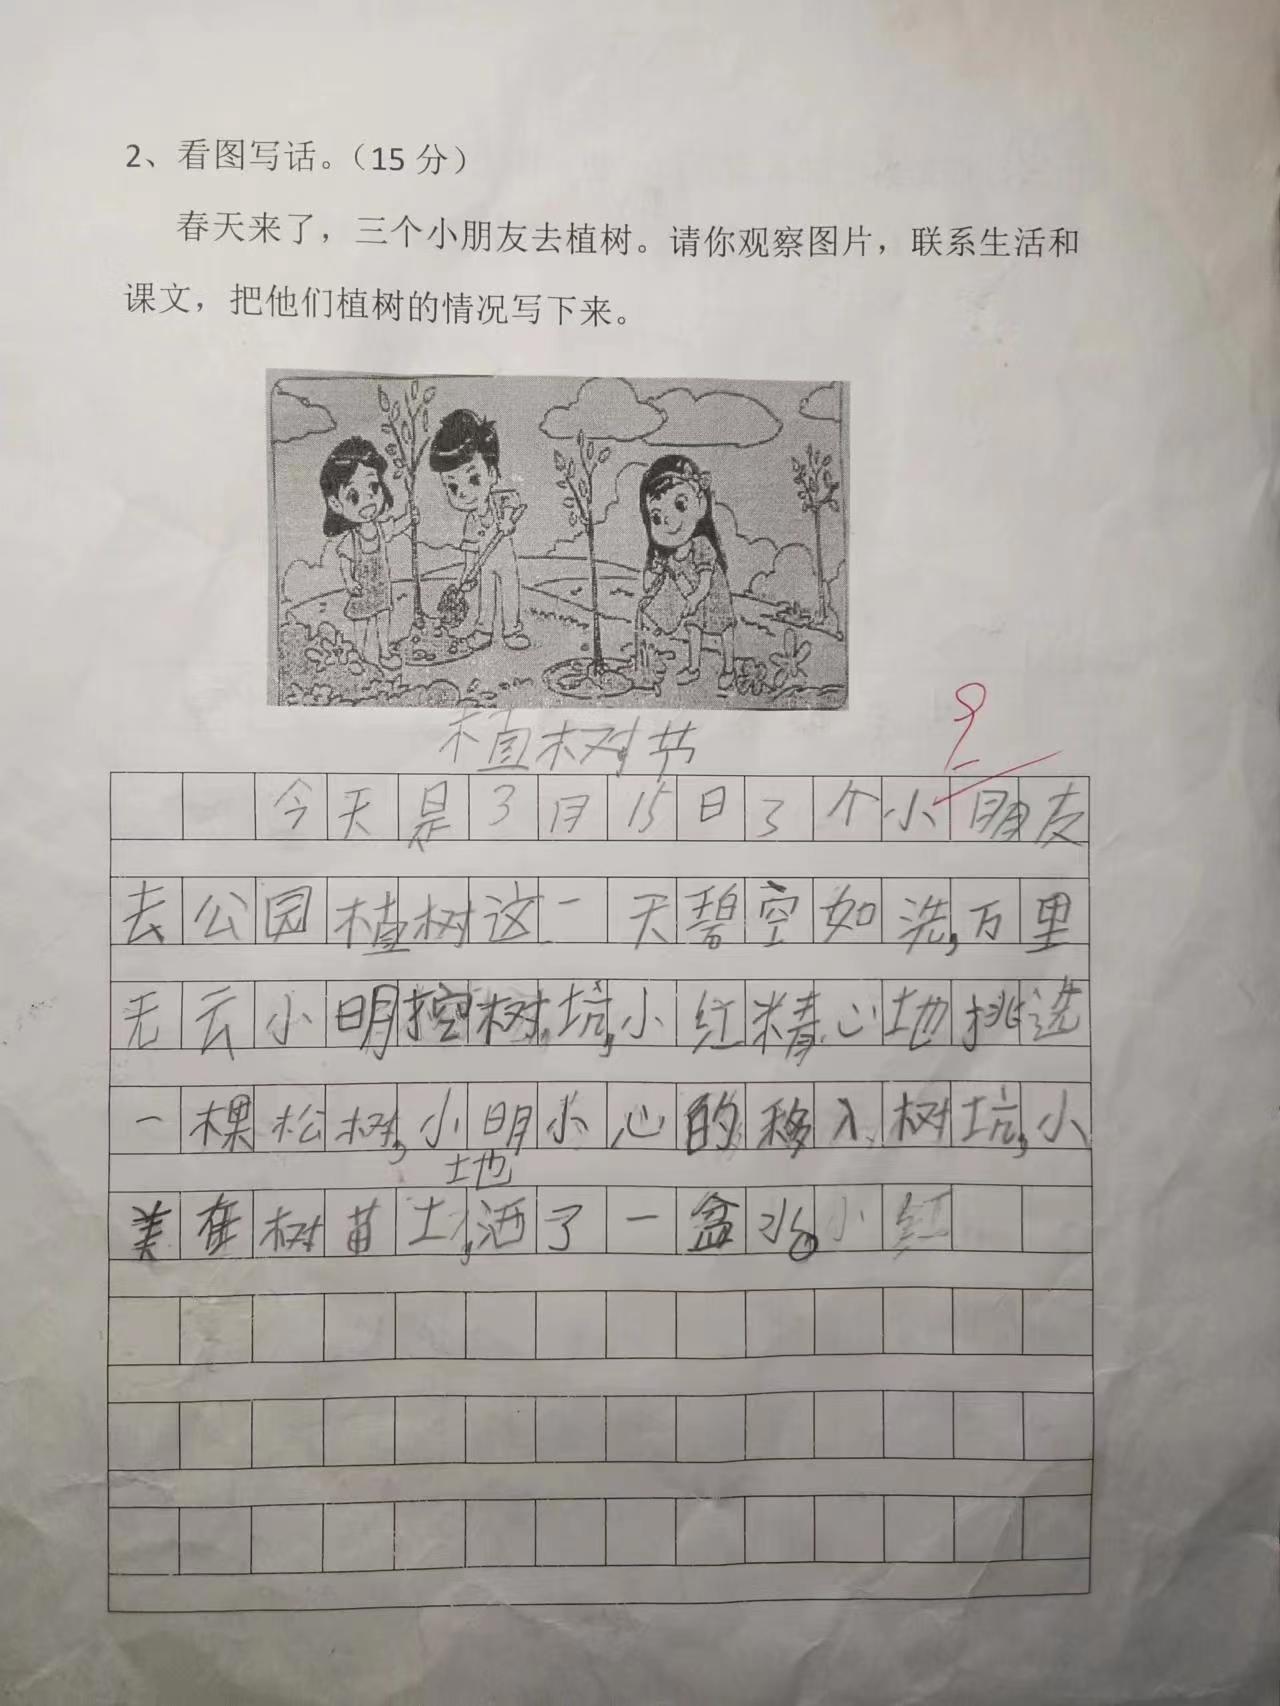 2、看图写话。（15分）
春天来了，三个小朋友去植树。请你观察图片，联系生活和
课文，把他们植树的情况写下来。
植树节
9
今天是3月15日3个小朋友
去公园植树这一天碧空如洗,万里
无云小明挖树坑,小红精心地挑选
一棵松树,小明小心的移入树坑,小
地
美在树苗土,洒了一盆水。小红